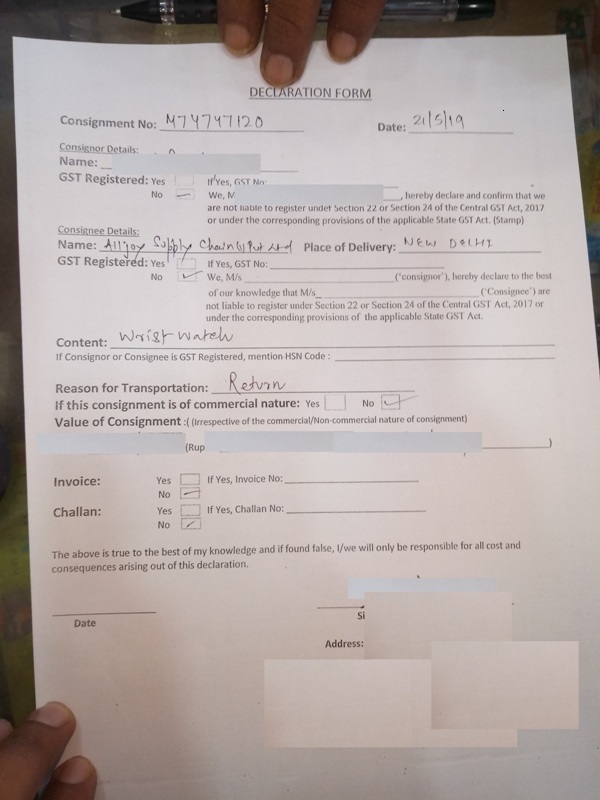 DECLARATION FORM
Consignment No: M74747120
Date: 21/5/19
Consignor Details:
Name:
GST Registered: Yes If Yes, GST No:
No We, M , hereby declare and confirm that we
are not liable to register under Section 22 or Section 24 of the Central GST Act, 2017
or under the corresponding provisions of the applicable State GST Act. (Stamp)
Consignee Details:
Name: Alljoy Supply Chain (I) Pvt Ltd Place of Delivery: NEW DELHI
GST Registered: Yes If Yes, GST No:
No We, M/s ('consignor'), hereby declare to the best
of our knowledge that M/s ('Consignee') are
not liable to register under Section 22 or Section 24 of the Central GST Act, 2017 or
under the corresponding provisions of the applicable State GST Act.
Content: Wrist Watch
If Consignor or Consignee is GST Registered, mention HSN Code :
Reason for Transportation: Return
If this consignment is of commercial nature: Yes No
Value of Consignment :( (Irrespective of the commercial/Non-commercial nature of consignment)
(Rup )
Invoice: Yes If Yes, Invoice No:
No
Challan: Yes If Yes, Challan No:
No
The above is true to the best of my knowledge and if found false, I/we will only be responsible for all cost and
consequences arising out of this declaration.
Date
Si
Address: